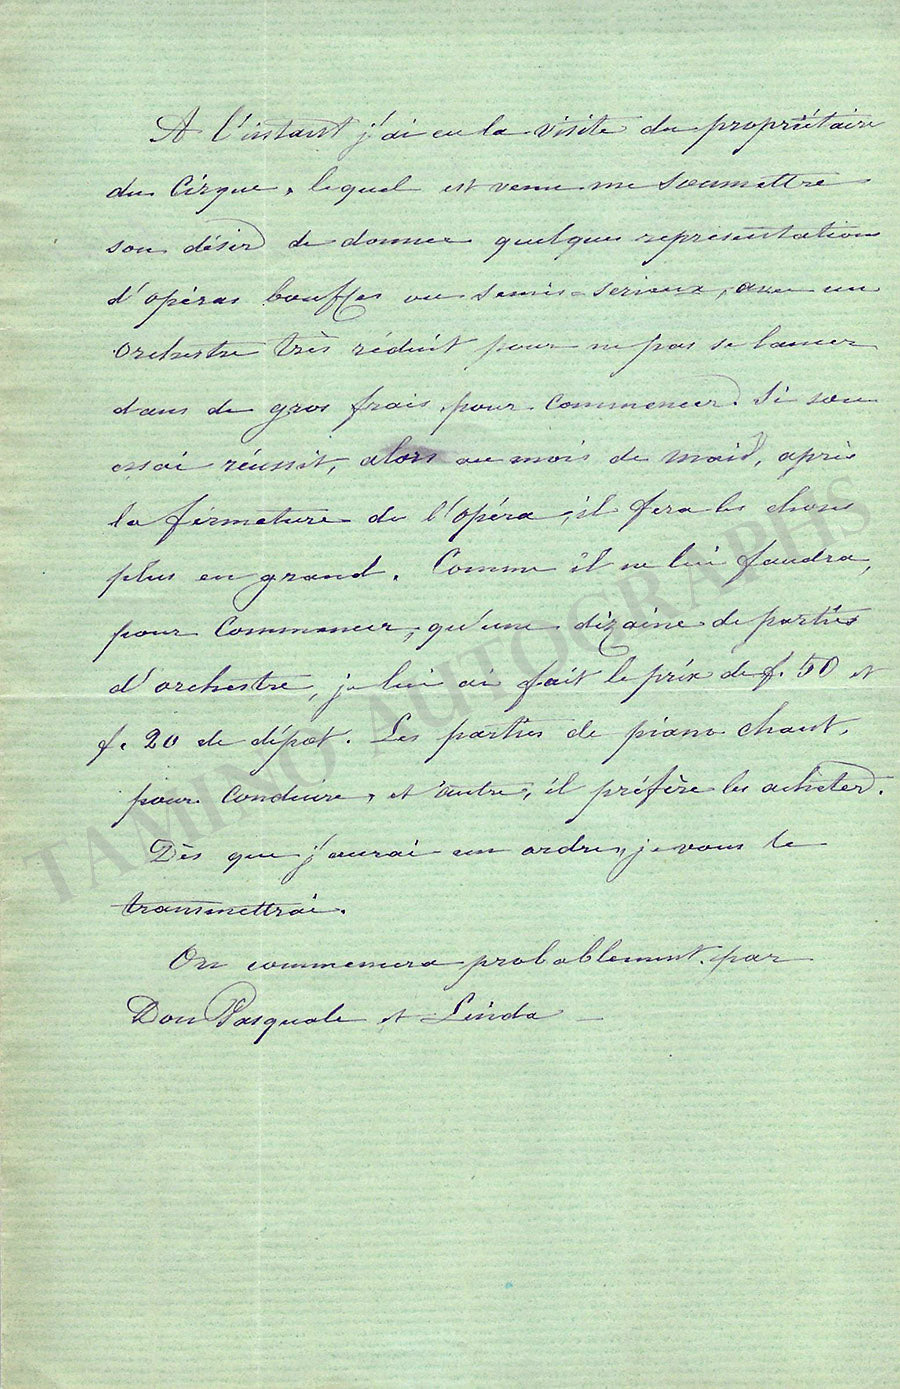 A l'instant j'ai eu la visite du propriétaire
du Cirque, lequel est venu me soumettre
son désir de donner quelques représentations
d'opéras bouffes ou semis-serieux, avec un
orchestre très réduit pour ne pas se lancer
dans de gros frais pour commencer. Si son
essai réussit, alors au mois de mai, après
la fermeture de l'opéra, il fera les choses
plus en grand. Comme il ne lui faudra,
pour commencer, qu'une dizaine de parties
d'orchestre, je lui ai fait le prix de f. 50 et
f. 20 de dépot. Les parties de piano chant,
pour conduire, et autre, il préfère les acheter.
Dès que j'aurai un ordre, je vous le
transmettrai.
On commencera probablement par
Don Pasquale et Linda
TAMINO AUTOGRAPHS